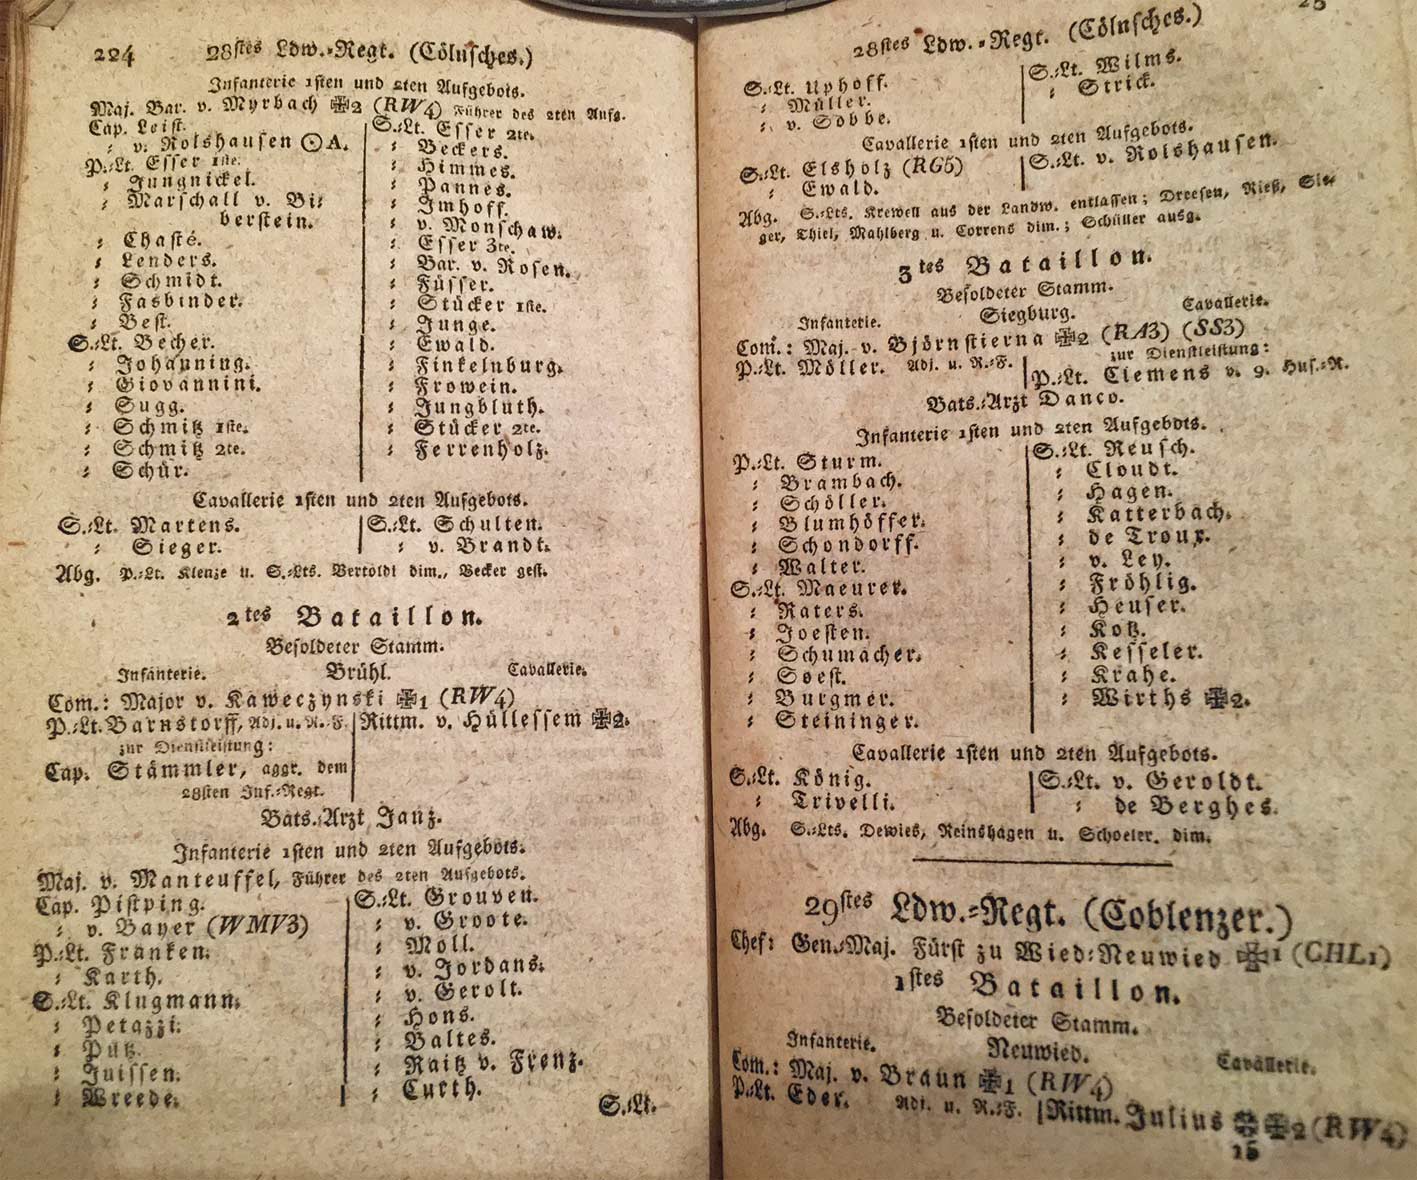 224 28stes Ldw.-Regt. (Cölnsches.)
Infanterie 1sten und 2ten Aufgebots.
Maj. Bar. v. Myrbach ✠2 (RW4) Führer des 2ten Aufg.
Cap. Leist.
⸗ v. Rolshausen ⨀A.
P.⸗Lt. Esser 1ste.
⸗ Jungnickel.
⸗ Marschall v. Bi⸗
berstein.
⸗ Chasté.
⸗ Lenders.
⸗ Schmidt.
⸗ Fasbinder.
⸗ Best.
S.⸗Lt. Becher.
⸗ Johanning.
⸗ Giovannini.
⸗ Sugg.
⸗ Schmitz 1ste.
⸗ Schmitz 2te.
⸗ Schür.
S.⸗Lt. Esser 2te.
⸗ Beckers.
⸗ Himmes.
⸗ Pannes.
⸗ Imhoff.
⸗ v. Monschaw.
⸗ Esser 3te.
⸗ Bar. v. Rosen.
⸗ Füsser.
⸗ Stücker 1ste.
⸗ Junge.
⸗ Ewald.
⸗ Finkelnburg.
⸗ Frowein.
⸗ Jungbluth.
⸗ Stücker 2te.
⸗ Ferrenholz.
Cavallerie 1sten und 2ten Aufgebots.
S.⸗Lt. Martens.
⸗ Sieger.
S.⸗Lt. Schulten.
⸗ v. Brandt.
Abg. P.⸗Lt. Klenze u. S.⸗Lts. Bertoldi dim., Becker gest.
2tes Bataillon.
Besoldeter Stamm.
Infanterie. Brühl. Cavallerie.
Com.: Major v. Kaweczynski ✠1 (RW4)
P.⸗Lt. Barnstorff, Adj. u. R.⸗F.
zur Dienstleistung:
Cap. Stämmler, aggr. dem
28sten Inf.⸗Regt.
Rittm. v. Hüllessem ✠2.
Bats.⸗Arzt Janz.
Infanterie 1sten und 2ten Aufgebots.
Maj. v. Manteuffel, Führer des 2ten Aufgebots.
Cap. Pistping.
⸗ v. Bayer (WMV3)
P.⸗Lt. Franken.
⸗ Karth.
S.⸗Lt. Klugmann.
⸗ Petazzi.
⸗ Pütz.
⸗ Juissen.
⸗ Wreede.
S.⸗Lt. Grouven.
⸗ v. Groote.
⸗ Moll.
⸗ v. Jordans.
⸗ v. Gerolt.
⸗ Hons.
⸗ Baltes.
⸗ Raitz v. Frenz.
⸗ Curth.
S.⸗Lt.
28stes Ldw.⸗Regt. (Cölnsches.)
S.⸗Lt. Uphoff.
⸗ Müller.
⸗ v. Sobbe.
S.⸗Lt. Wilms.
⸗ Strick.
Cavallerie 1sten und 2ten Aufgebots.
S.⸗Lt. Elsholz (RG5)
⸗ Ewald.
S.⸗Lt. v. Rolshausen.
Abg. S.⸗Lts. Krewell aus der Landw. entlassen; Dreesen, Rieß, Sie⸗
ger, Thiel, Mahlberg u. Correns dim.; Schüller ausg.
3tes Bataillon.
Besoldeter Stamm.
Infanterie. Siegburg. Cavallerie.
Com.: Maj. v. Björnstierna ✠2 (RA3) (SS3)
P.⸗Lt. Möller. Adj. u. R.⸗F.
zur Dienstleistung:
P.⸗Lt. Clemens v. 9. Hus.⸗R.
Bats.⸗Arzt Danco.
Infanterie 1sten und 2ten Aufgebots.
P.⸗Lt. Sturm.
⸗ Brambach.
⸗ Schöller.
⸗ Blumhöffer.
⸗ Schondorff.
⸗ Walter.
S.⸗Lt. Maeurer.
⸗ Raters.
⸗ Joesten.
⸗ Schumacher.
⸗ Soest.
⸗ Burgmer.
⸗ Steininger.
S.⸗Lt. Reusch.
⸗ Cloudt.
⸗ Hagen.
⸗ Katterbach.
⸗ de Troux.
⸗ v. Ley.
⸗ Fröhlig.
⸗ Heuser.
⸗ Kotz.
⸗ Kesseler.
⸗ Krahe.
⸗ Wirths ✠2.
Cavallerie 1sten und 2ten Aufgebots.
S.⸗Lt. König.
⸗ Trivelli.
S.⸗Lt. v. Geroldt.
⸗ de Berghes.
Abg. S.⸗Lts. Dewies, Reinshagen u. Schoeler. dim.
29stes Ldw.⸗Regt. (Coblenzer.)
Chef: Gen.⸗Maj. Fürst zu Wied⸗Neuwied ✠1 (CHL1)
1stes Bataillon.
Besoldeter Stamm.
Infanterie. Neuwied. Cavallerie.
Com.: Maj. v. Braun ✠1 (RW4)
P.⸗Lt. Eder. Adj. u. R.⸗F.
Rittm. Julius ✠✠2 (RW4)
15